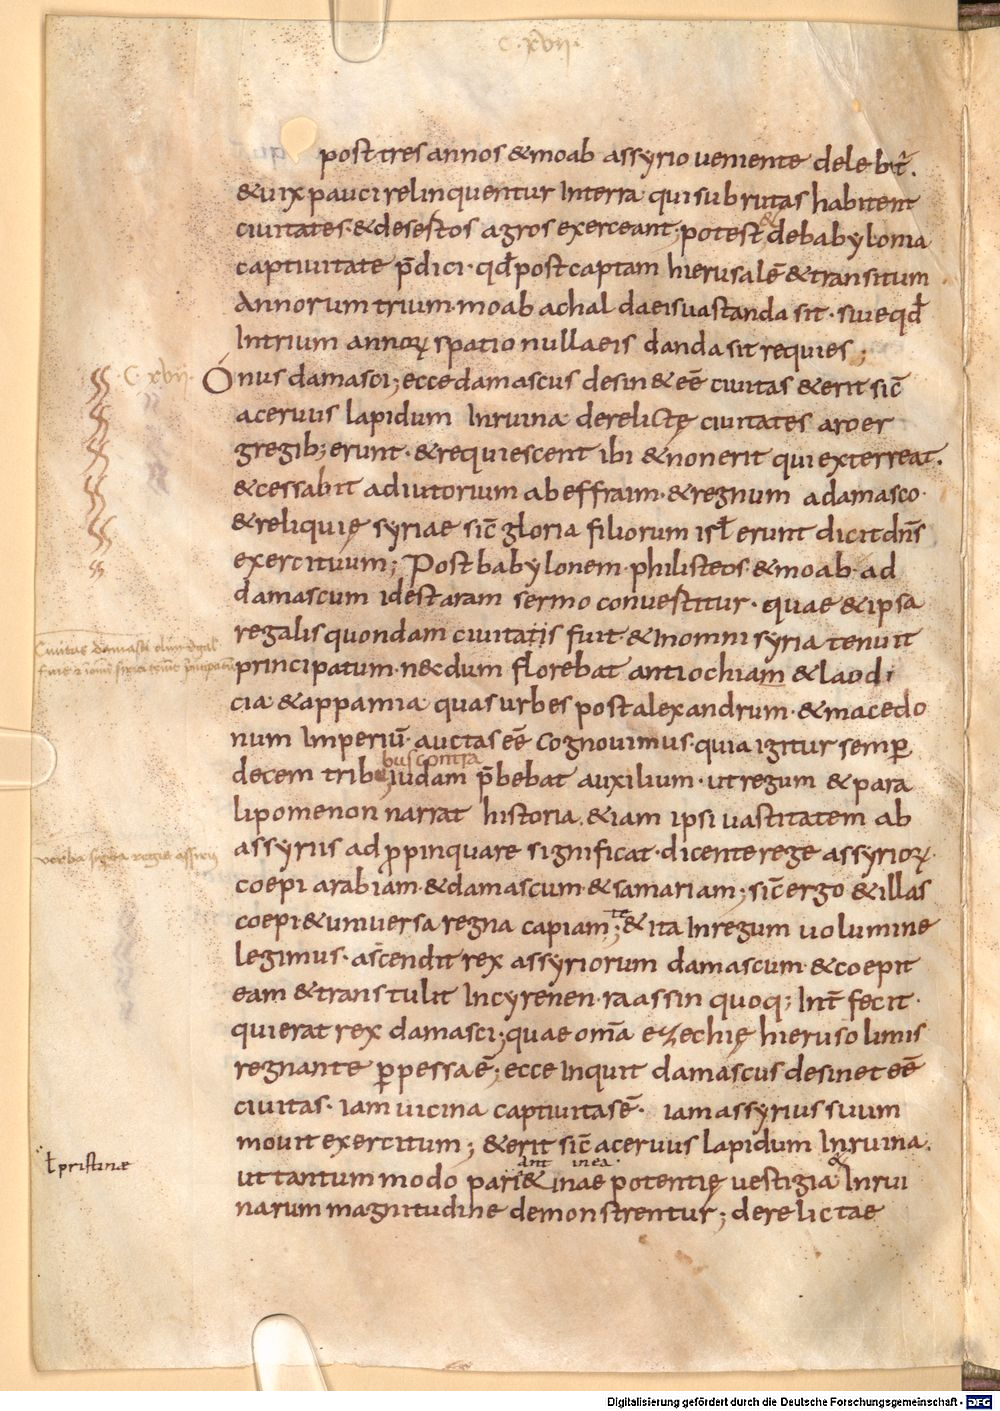 C · xvii ·
post tres annos &moab assyrio ueniente delebt̃.
&uix pauci relinquentur Interra quisubrutas habitent
ciuitates·&desertos agros exerceant; potest & debabylonia
captiuitate p̄dici· qđ post captam hierusalē &transitum
Annorum trium·moab achaldaeis uastanda sit· siue qđ
Intrium annoꝝ spatio nulla eis danda sit requies;
C xvii· Onus damasci; ecce damascus desin& eē ciuitas &erit sic̄
aceruus lapidum Inruina derelictę ciuitates aroer
gregib; erunt· &requiescent ibi &nonerit qui exterreat.
&cessabit adiutorium abeffraim·&regnum adamasco·
&reliquię syriae sic̄ gloria filiorum isrł erunt dicit dn̄s
exercituum; Post babylonem· philisteos·&moab·ad
damascum idest aram sermo conuertitur· quae &ipsa
regalis quondam ciuitatis fuit·&Inomni syria tenuit
Ciuitas damasci olim regał
fuit & ī omni siria tenuit principatū
principatum·necdum florebat antiochiam &laodi
cia·&appamia quas urbes post alexandrum·&macedo
num Imperiū·auctas eē cognouimus·quia igitur semp̱
decem tribubus contra iudam p̄bebat auxilium·ut regum &para
lipomenon narrat historia·&iam ipsi uastitatem ab
verba regis assirii
assyriis adp̱pinquare significat·dicente rege assyrioꝝ·
coepi arabiam·&damascum·&samariam; sic̄ ergo &illas
coepi &uniuersa regna capiam; te & ita Inregum uolumine
legimus· ascendit rex assyriorum damascum·&coepit
eam &transtulit Incyrenen·raassin quoq; Int̄fecit·
qui erat rex damasci; quae om̄a ezechię hierusolimis
regnante p̱pessa ē; ecce Inquit damascus desinet eē
ciuitas· iam uicina captiuitas ē· iam assyrius suum
mouit exercitum; &erit sic̄ aceruus lapidum Inruina.
ł pristinae
ut tantum modo pari& ant inea inae potentię uestigia & Inrui
narum magnitudine demonstrentur; derelictae
Digitalisierung gefördert durch die Deutsche Forschungsgemeinschaft - DFG